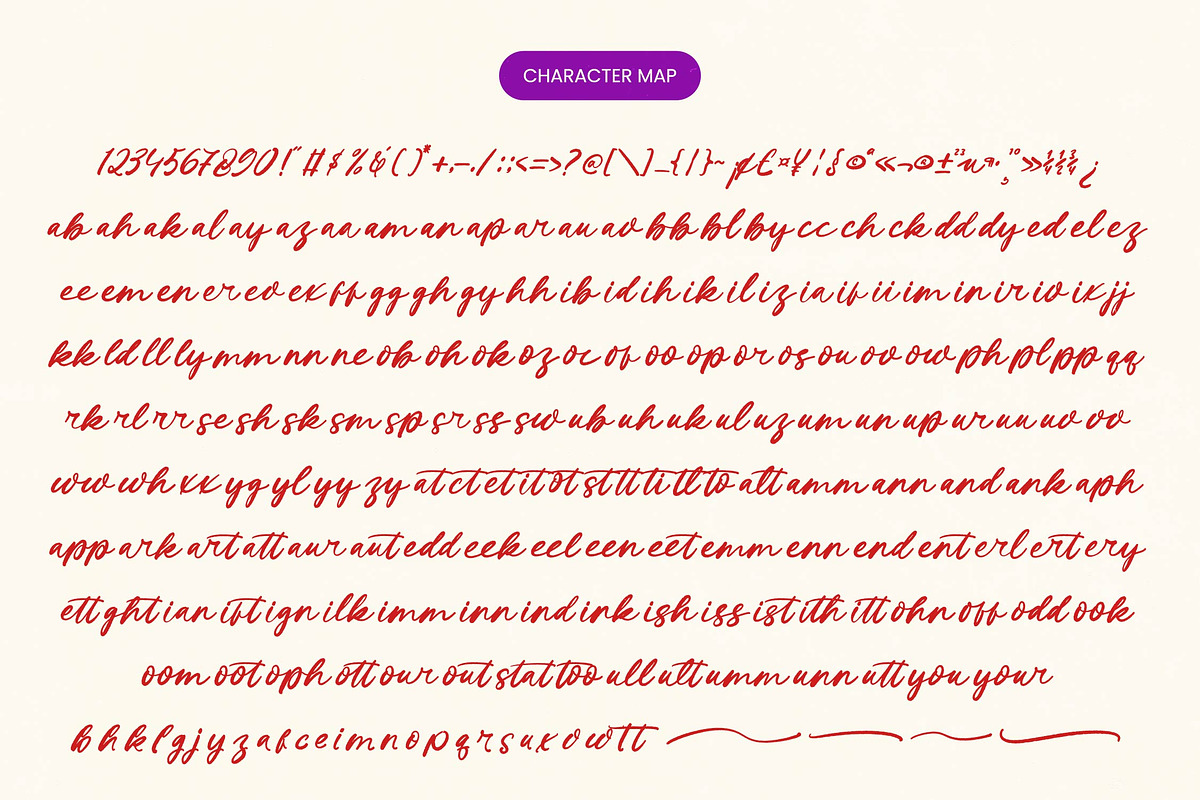 CHARACTER MAP
1234567890!" # $ % & ' ( ) * + , - . / : ; < = > ? @ [ \ ] _ { | } ~ ¡ ¢ £ ¤ ¥ ¦ § © ª « ¬ ® ± ² ³ µ ¶ · ¸ ¹ º » ¼ ½ ¾ ¿
ab ah ak al ay az aa am an ap ar au av bb bl by cc ch ck dd dy ed el ez
ee em en er ev ex ff gg gh gy hh ib id ih ik il iz ia if ii im in ir iv ix jj
kk ld ll ly mm nn ne ob oh ok oz oc of oo op or os ou ov ow ph pl pp qq
rk rl rr se sh sk sm sp sr ss sw ub uh uk ul uz um un up ur uu uv vv
ww wh xx yg yl yy zy at ct et it ot st tt ti tl to alt amm ann and ank aph
app ark art att aur aut edd eek eel een eet emm enn end ent erl ert ery
ett ght ian ift ign ilk imm inn ind ink ish iss ist ith itt ohn off odd ook
oom oot oph ott our out stat too ull ult umm unn utt you your
b h k l g j y z a f c e i m n o p q r s u x v w t t